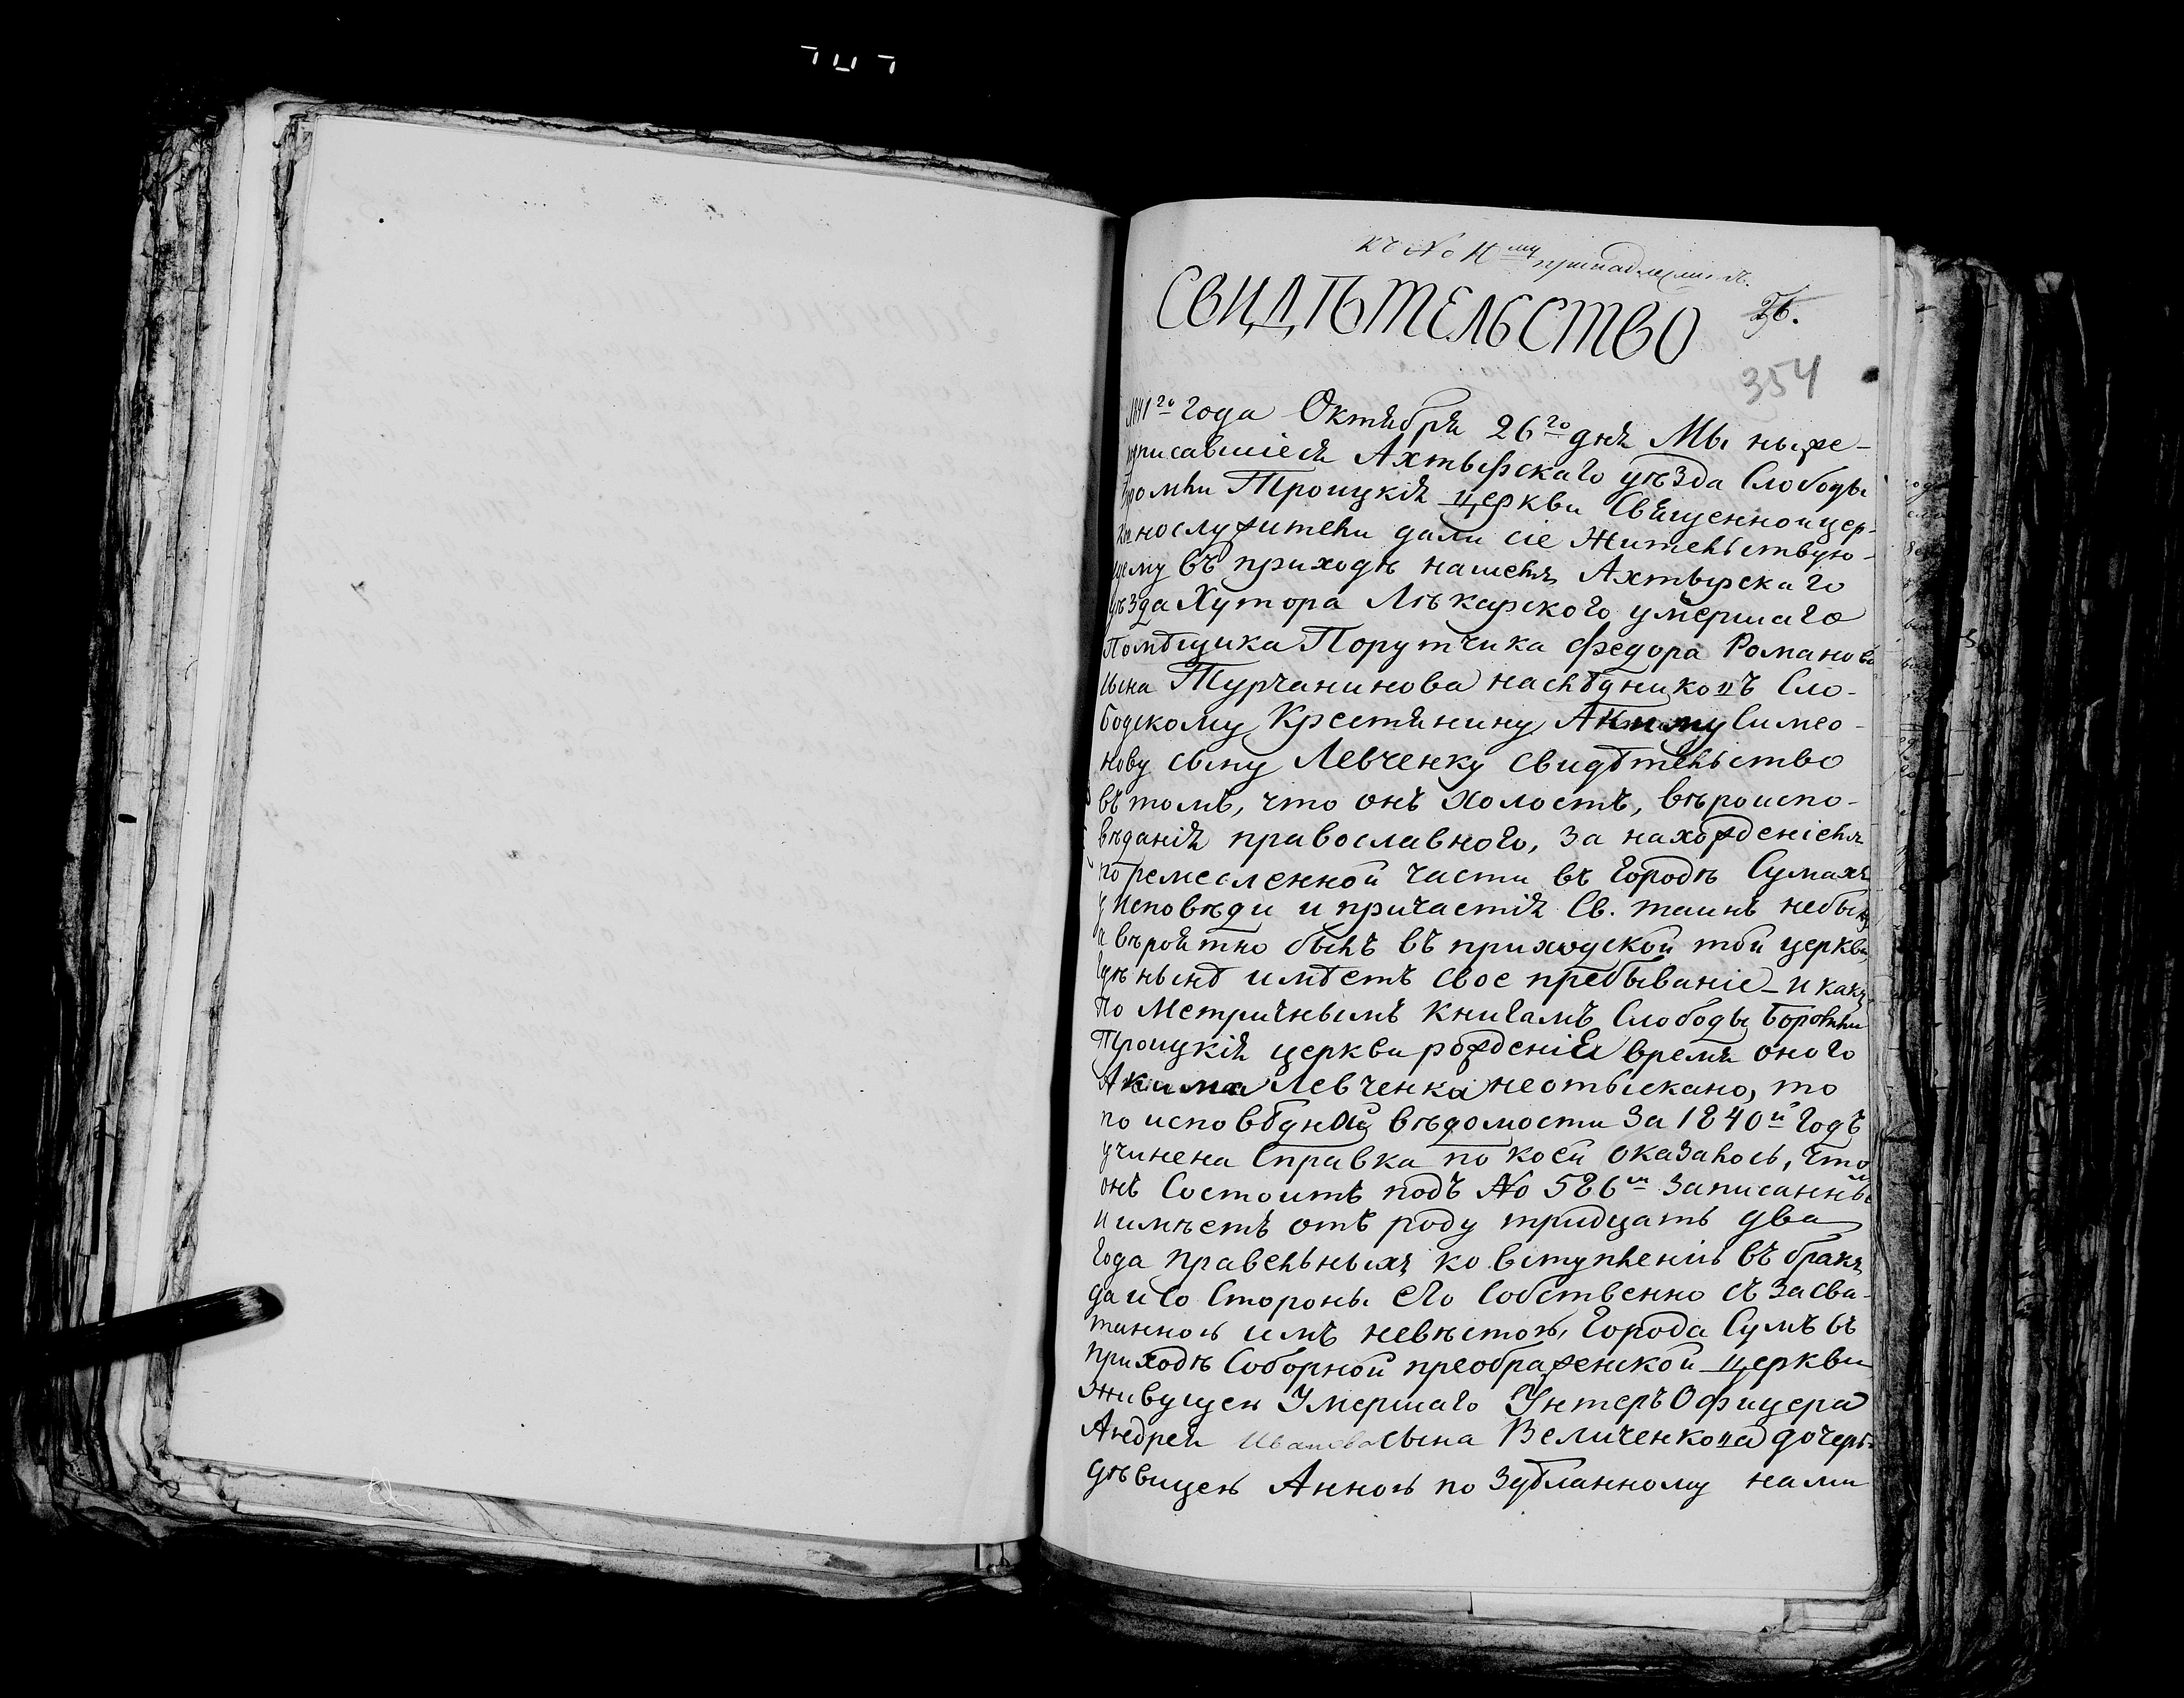 къ № 11му принадлежитъ.
СВИДѢТЕЛЬСТВО
26.
354
1841го года Октября 26го дня Мы ниже-
подписавшіеся Ахтырскаго уѣзда Слободы
Боромли Троицкія церкви Священноицер-
ковнослужители дали сіе жительствую-
щему въ приходѣ нашемъ Ахтырскаго
уѣзда Хутора Лѣкарского умершаго
Помѣщика Порутчика Федора Романова
сына Турчанинова наслѣдниковъ Сло-
бодскому Крестянину Акиму Симео-
нову сыну Левченку свидѣтельство
въ томъ, что онъ холостъ, вѣроиспо-
вѣданія православного, за нахожденіемъ
по ремесленной части въ городѣ Сумахъ
у Исповѣди и причастія Св. таинъ небылъ
и вѣроятно былъ въ приходской той церкви
гдѣ нынѣ имѣетъ свое пребываніе - и какъ
по Метричнымъ книгамъ Слободы Боромли
Троицкія церкви рожденія время оного
Акима Левченка неотыскано, то
по исповѣдной вѣдомости за 1840й годъ
учинена Справка по коей оказалось, что
онъ Состоитъ подъ № 586м записанным
и имѣетъ отъ роду тридцать два
года правельныхъ ко вступленію въ бракъ
да и со Стороны его собственно съ засва-
танною имъ невѣстою, города Сумъ въ
приходѣ Соборной преображенской церкви
живущею Умершаго Унтеръ Офицера
Андрея Иванова сына Величенкова дочерью
дѣвицею Анною по здѣланному нами